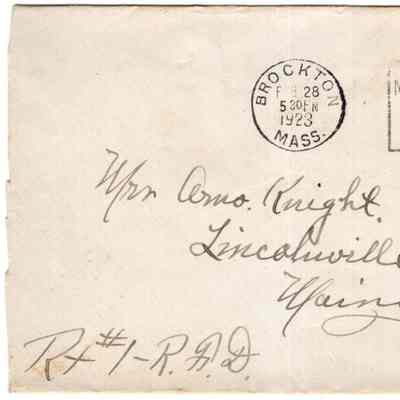 BROCKTON
FEB 28
5 30 PM
1923
MASS.
M
Mrs Arno. Knight.
Lincolnville
Maine
Rt #1-R.F.D.